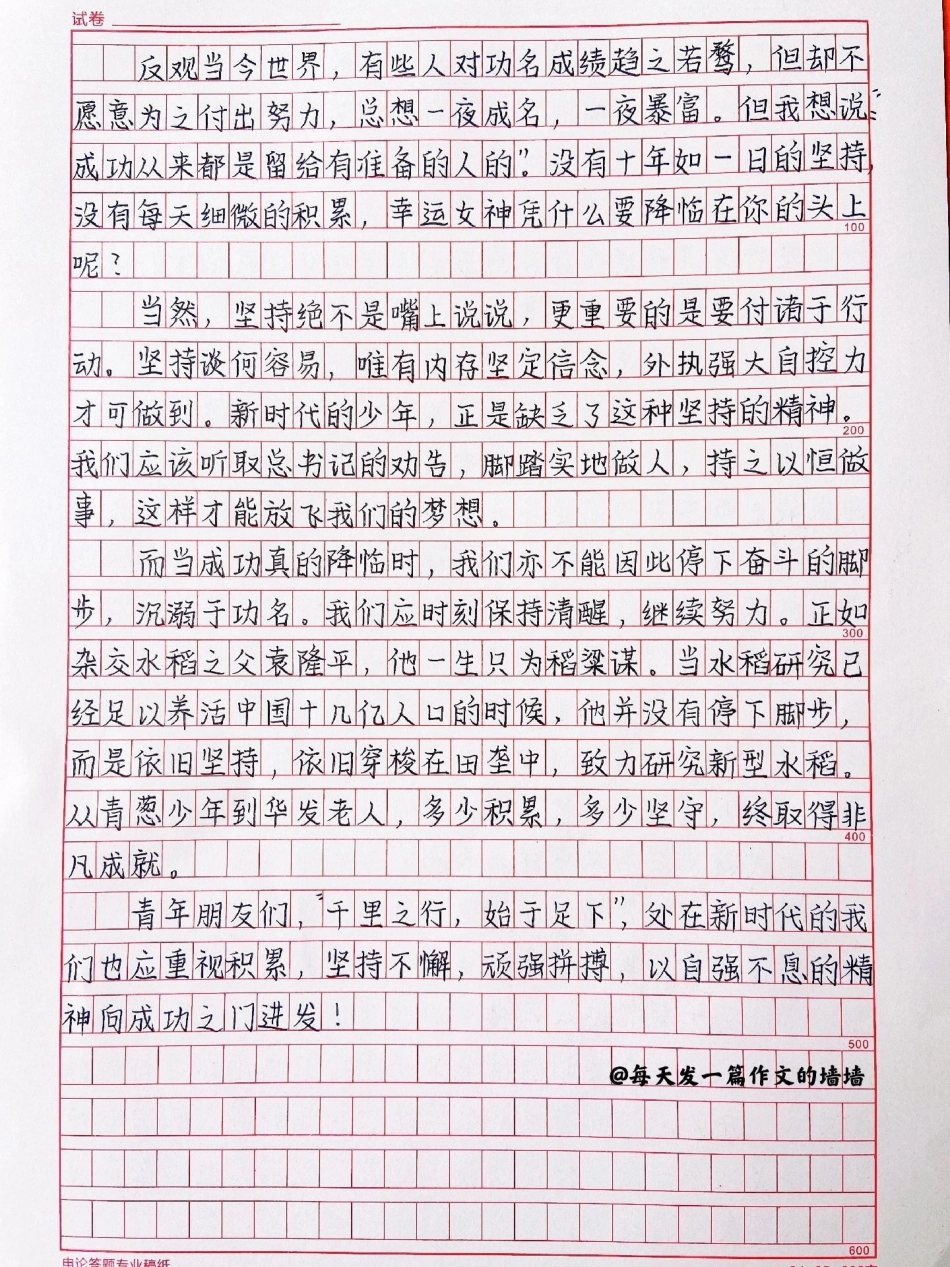 试卷
反观当今世界，有些人对功名成绩趋之若鹜，但却不
愿意为之付出努力，总想一夜成名，一夜暴富。但我想说：“
成功从来都是留给有准备的人的”。没有十年如一日的坚持，
没有每天细微的积累，幸运女神凭什么要降临在你的头上
100
呢？
当然，坚持绝不是嘴上说说，更重要的是要付诸于行
动。坚持谈何容易，唯有内存坚定信念，外执强大自控力
才可做到。新时代的少年，正是缺乏了这种坚持的精神。
200
我们应该听取总书记的劝告，脚踏实地做人，持之以恒做
事，这样才能放飞我们的梦想。
而当成功真的降临时，我们亦不能因此停下奋斗的脚
步，沉溺于功名。我们应时刻保持清醒，继续努力。正如
300
杂交水稻之父袁隆平，他一生只为稻粱谋。当水稻研究已
经足以养活中国十几亿人口的时候，他并没有停下脚步，
而是依旧坚持，依旧穿梭在田垄中，致力研究新型水稻。
从青葱少年到华发老人，多少积累，多少坚守，终取得非
400
凡成就。
青年朋友们，“千里之行，始于足下”，处在新时代的我
们也应重视积累，坚持不懈，顽强拼搏，以自强不息的精
神向成功之门进发！
500
@每天发一篇作文的墙墙
600
申论答题专业稿纸